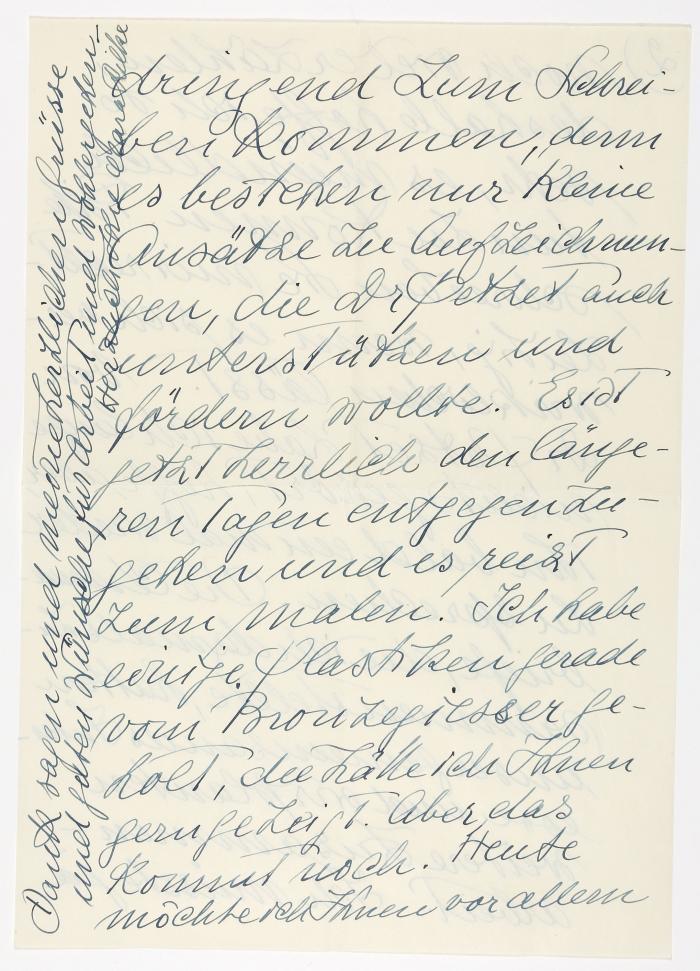 dringend zum Schrei-
ben kommen, denn
es bestehen nur kleine
Ansätze zu Aufzeichnun-
gen, die Dr Petzet auch
unterstützen und
fördern wollte. Es ist
jetzt herrlich den länge-
ren Tagen entgegenzu-
gehen und es reizt
zum malen. Ich habe
einige Plastiken gerade
vom Bronzegiesser ge-
holt, die hätte ich Ihnen
gern gezeigt. Aber das
kommt noch. Heute
möchte ich Ihnen vor allem
Dank sagen und meine herzlichen Grüsse
und guten Wünsche für Arbeit und Wohlergehen -
Herzlich Ihre Clara Rilke